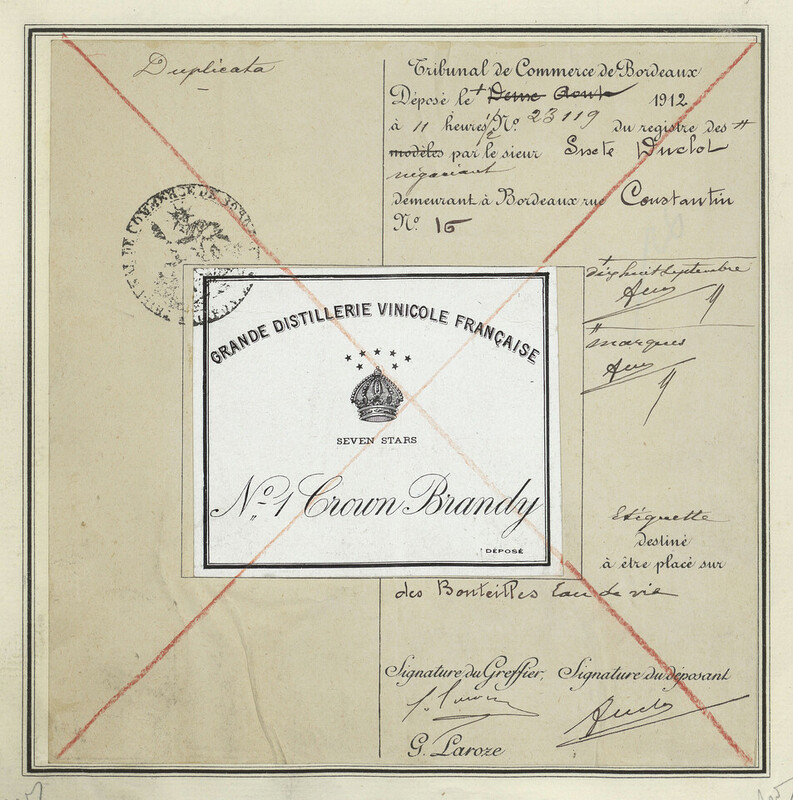 Duplicata
Tribunal de Commerce de Bordeaux
Déposé le # Douze Aout 1912
à 11 heures 1/2 No. 23119 du registre des #
modèles par le sieur Sixte Duclot
négociant
demeurant à Bordeaux rue Constantin
No. 16
TRIBUNAL DE COMMERCE DE BORDEAUX
dix huit Septembre
# marques
GRANDE DISTILLERIE VINICOLE FRANÇAISE
SEVEN STARS
No. 1 Crown Brandy
DÉPOSÉ
Etiquette
destiné
à être placé sur
des Bouteilles Eau de vie
Signature du Greffier, Signature du déposant
G. Laroze